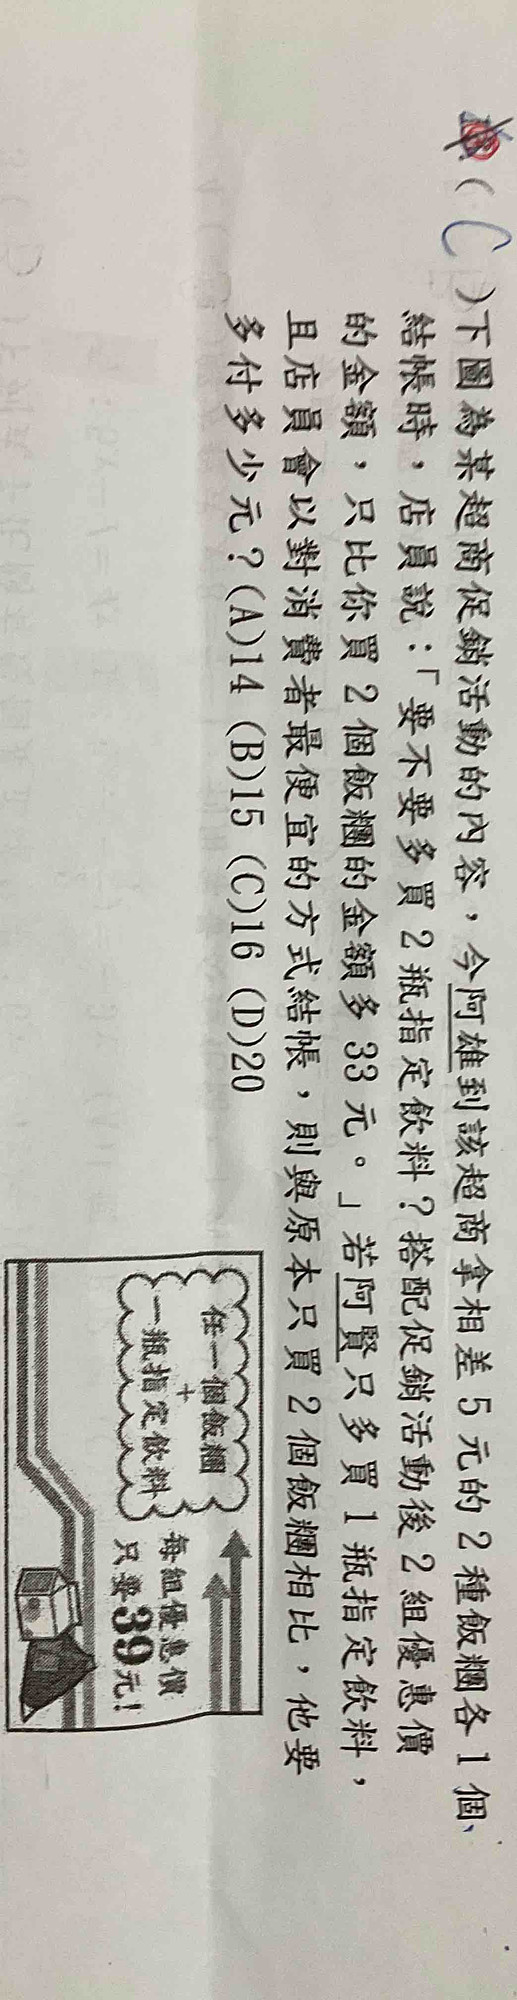 ( C )下圖為某超商促銷活動的內容，今阿雄到該超商拿相差5元的2種飯糰各1個、
結帳時，店員說：「要不要多買2瓶指定飲料？搭配促銷活動後2組優惠價
的金額，只比你買2個飯糰的金額多33元。」若阿賢只多買1瓶指定飲料，
且店員會以對消費者最便宜的方式結帳，則與原本只買2個飯糰相比，他要
多付多少元？(A)14 (B)15 (C)16 (D)20
任一個飯糰
+
一瓶指定飲料
每組優惠價
只要39元！